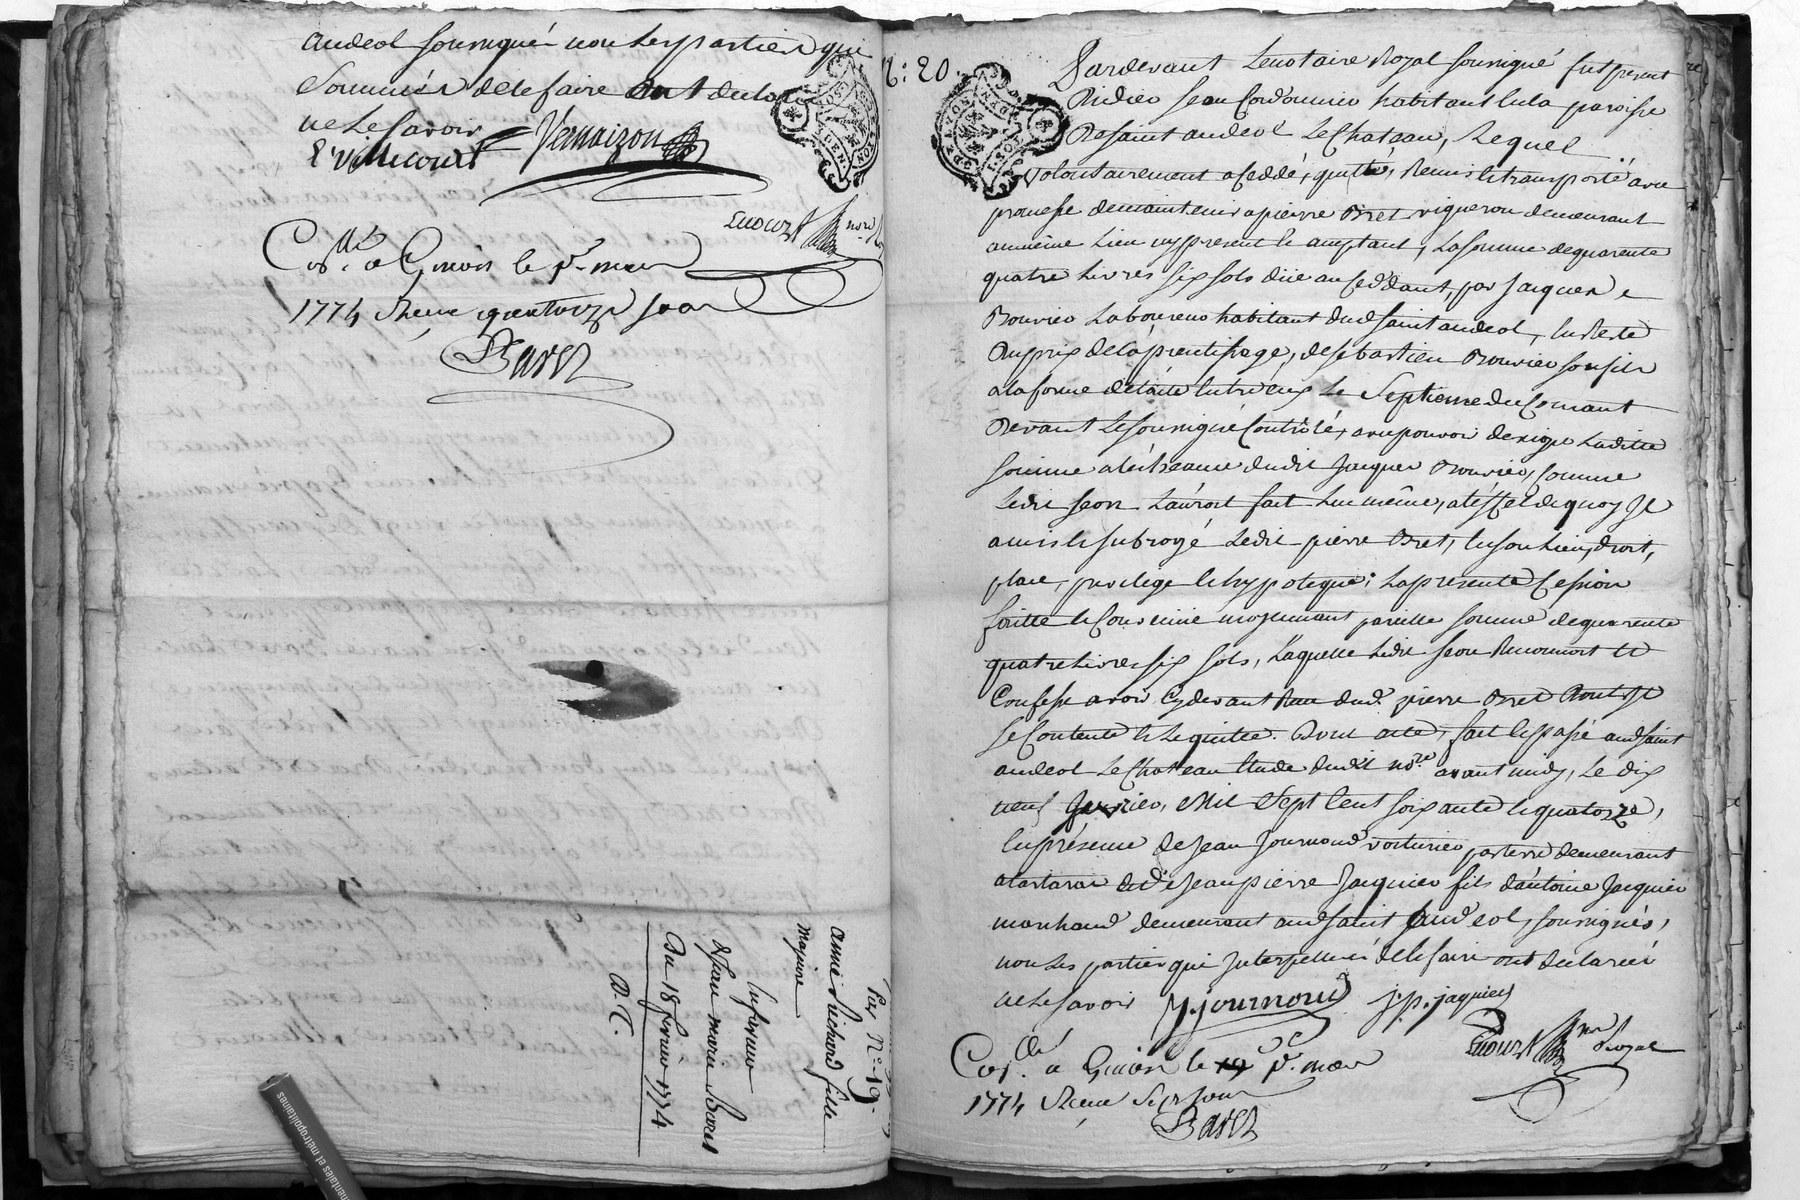 andeol soussignés non les parties qui
sommées de le faire ont declaré
ne le savoir
Vernaizon
Con.lé a Givors le p.r mars
1774 Reçeu quatorze sous
Barez
anne Richard fille
majeure
du 18 fevrier 1774
N.o 19.
N.: 20.
Pardevant Le notaire Royal soussigné fut present
Didier Jean Cordonnier habitant en la paroisse
De saint andeol Le Chateau, Lequel
volontairement a ceddé, quitté, Remis et transporté avec
promesse de maintenir a pierre Bret vigneron demeurant
au même Lieu icy present et acceptant, La somme de quarente
quatre Livres six sols düe au Ceddant, par Jacques
Bouvier Laboureur habitant dud. saint andeol, en Reste
du prix de l'aprentissage, de sebastien Bouvier son fils
a la forme de l'acte entr'eux Le Septieme du Courant
Devant Le soussigné Contrôlé, avec pouvoir dexiger Laditte
somme a lécheance dudit Jacques Bouvier, Comme
Ledit Jean L'auroit fait Lui même, a l'effet de quoy Il
a mis et subrogé Ledit pierre Bret, en son Lieu, droit,
place, privilege et hypoteque; La presente Cession
faitte et Convenüe moyennant pareille somme de quarente
quatre Livres six sols, Laquelle Ledit Jean Reconnoit et
Confesse avoir Cydevant Reçu dud. pierre Bret dont Il
se Contente et Le quitte. Dont acte, fait et passé aud. saint
andeol Le Chateau Etude dudit no.re avant midy, Le dix
neuf fevrier, Mil Sept Cent soixante et quatorze,
En présence de Jean Journoud voiturier par terre demeurant
a tartaras et de Jean pierre Jacquier fils d'antoine Jacquier
marchand demeurant aud. saint andeol, soussignés,
non Les parties qui Interpellées de le faire ont declaré
ne Le savoir J. journoud j. p. jaquier
Royal
Con.lé a Givors le p.r mars
1774 Reçeu sept sous
Barez
mentales et métropolitaines